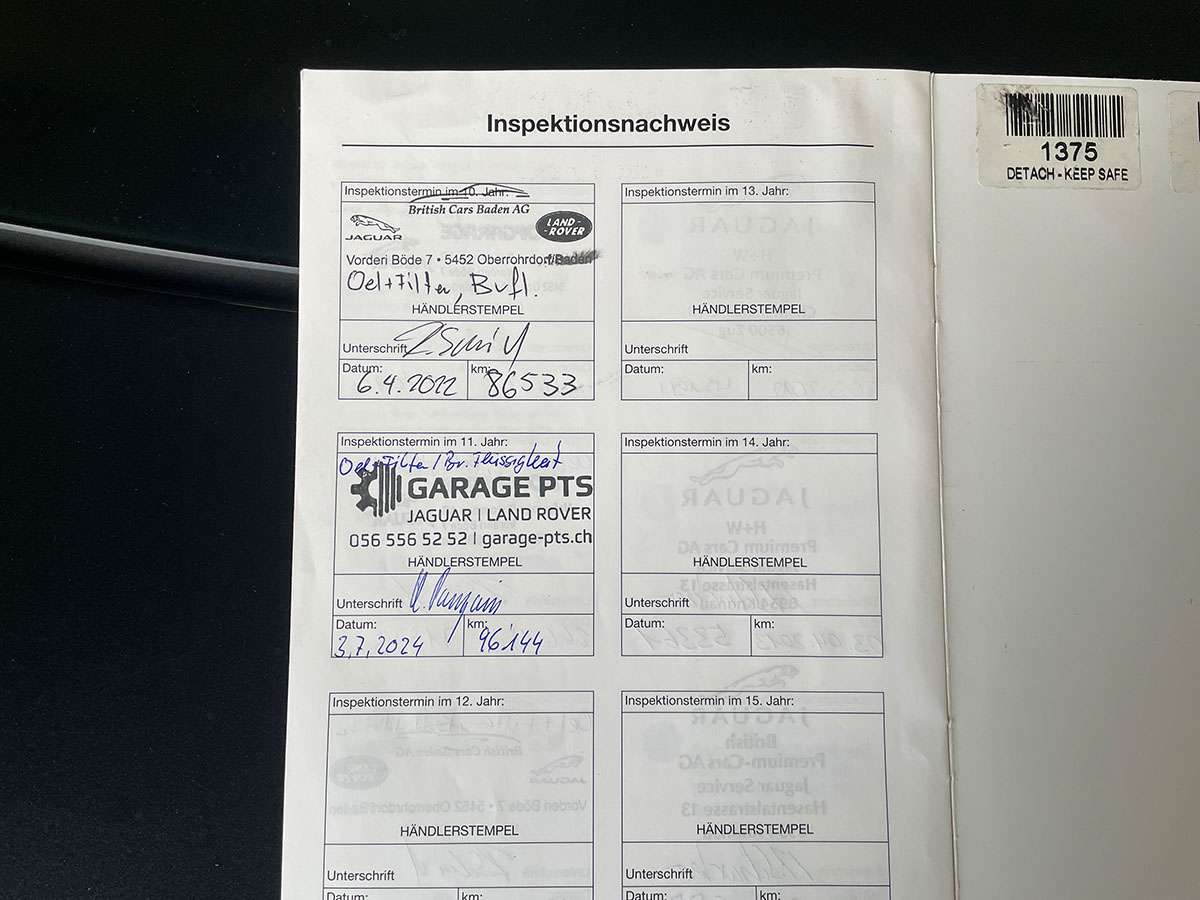 Inspektionsnachweis
Inspektionstermin im 10. Jahr:
British Cars Baden AG
JAGUAR
LAND-
-ROVER
Vorderi Böde 7 • 5452 Oberrohrdorf/Baden
Oel+Filter, Brfl.
HÄNDLERSTEMPEL
Unterschrift
Datum:
6.4.2022
km:
86533
Inspektionstermin im 11. Jahr:
Oel+Filter / Br. Flüssigkeit
GARAGE PTS
JAGUAR | LAND ROVER
056 556 52 52 | garage-pts.ch
HÄNDLERSTEMPEL
Unterschrift
Datum:
3.7.2024
km:
96'144
Inspektionstermin im 12. Jahr:
HÄNDLERSTEMPEL
Unterschrift
Datum:
km:
Inspektionstermin im 13. Jahr:
HÄNDLERSTEMPEL
Unterschrift
Datum:
km:
Inspektionstermin im 14. Jahr:
HÄNDLERSTEMPEL
Unterschrift
Datum:
km:
Inspektionstermin im 15. Jahr:
HÄNDLERSTEMPEL
Unterschrift
Datum:
km:
1375
DETACH - KEEP SAFE